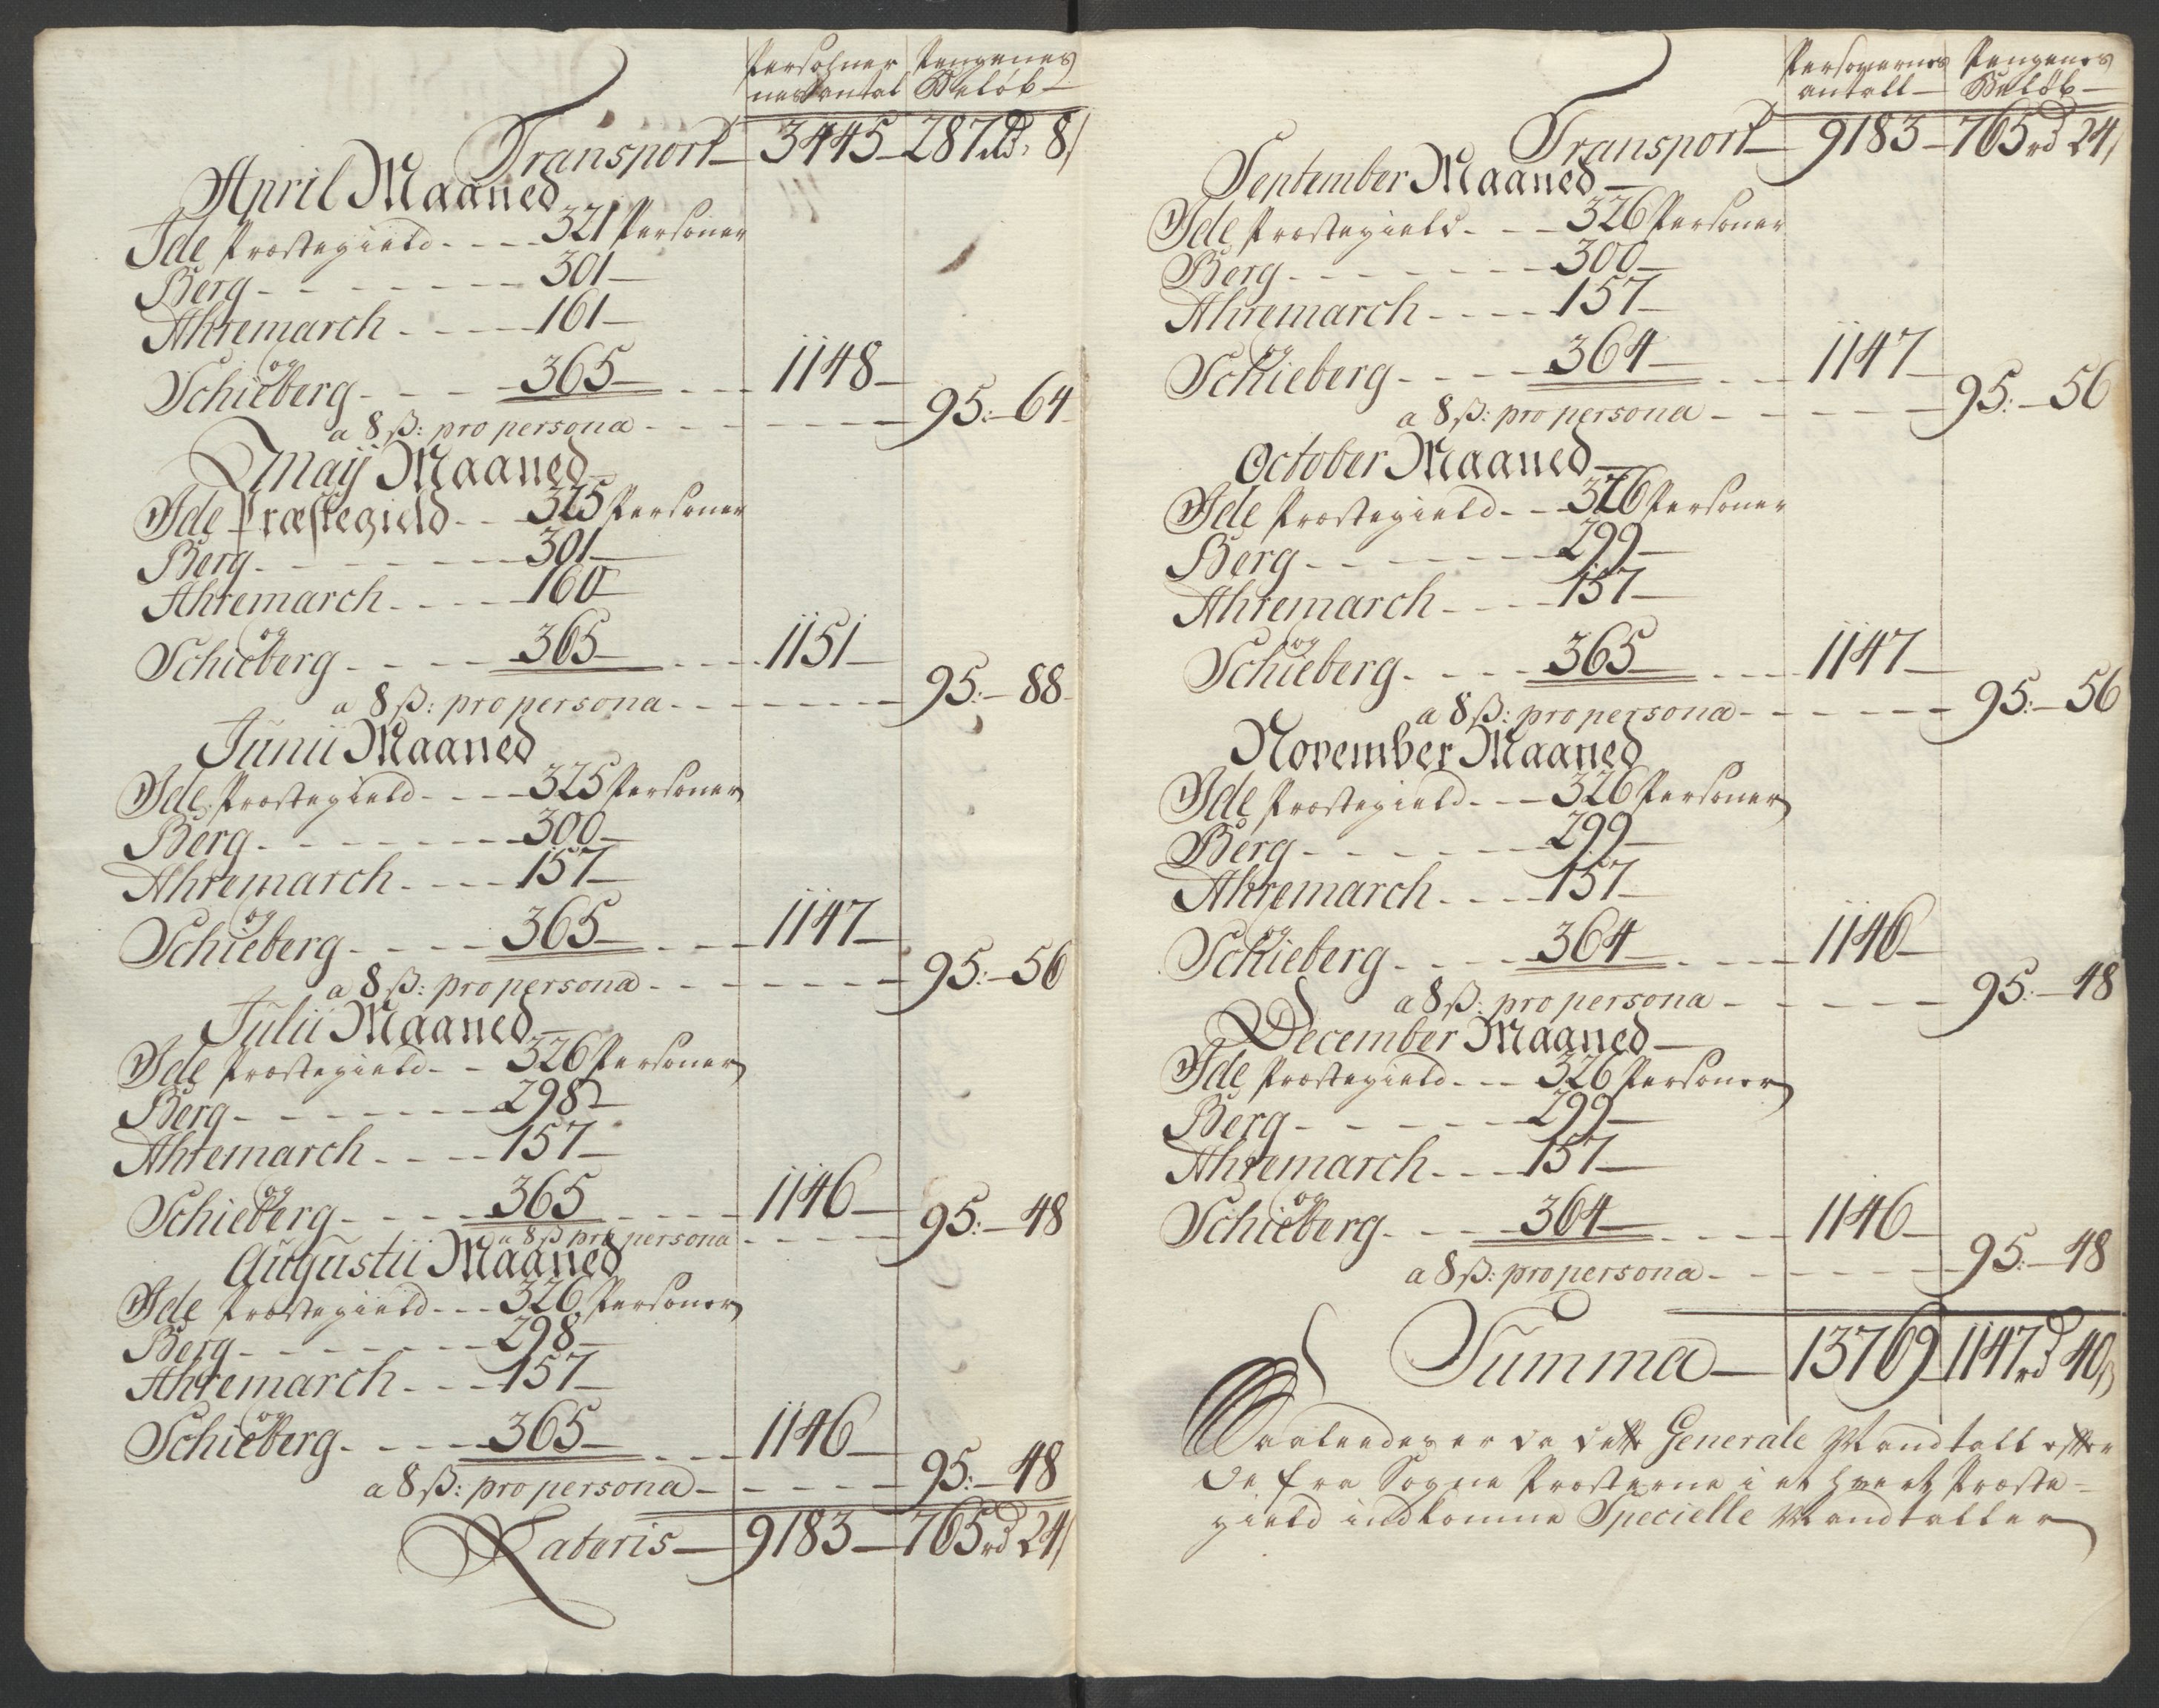 Persohner Pengenes
nes antal Beløb
Transport 3445 287 rd. 8
April Maaned
Ide Præstegield 321 Personer
Berg 301
Ahremarch 161
og
Schieberg 365 1148
a 8 ß: pro persona 95: 64
Maij Maaned
Ide Præstegield 325 Personer
Berg 301
Ahremarch 160
og
Schieberg 365 1151
a 8 ß: pro persona 95: 88
Junii Maaned
Ide Præstegield 325 Personer
Berg 300
Ahremarch 157
og
Schieberg 365 1147
a 8 ß: pro persona 95: 56
Julii Maaned
Ide Præstegield 326 Personer
Berg 298
Ahremarch 157
og
Schieberg 365 1146
a 8 ß pro persona 95: 48
Augustii Maaned
Ide Præstegield 326 Personer
Berg 298
Ahremarch 157
og
Schieberg 365 1146
a 8 ß: pro persona 95: 48
Lateris 9183 765 rd 24
Personernes Pengenes
antall Beløb
Transport 9183 765 rd 24
September Maaned
Ide Præstegield 326 Personer
Berg 300
Ahremarch 157
og
Schieberg 364 1147
a 8 ß: pro persona 95: 56
October Maaned
Ide Præstegield 326 Personer
Berg 299
Ahremarch 157
og
Schieberg 365 1147
a 8 ß: pro persona 95: 56
November Maaned
Ide Præstegield 326 Personer
Berg 299
Ahremarch 157
og
Schieberg 364 1146
a 8 ß: pro persona 95: 48
December Maaned
Ide Præstegield 326 Personer
Berg 299
Ahremarch 157
og
Schieberg 364 1146
a 8 ß: pro persona 95: 48
Summa 13769 1147 rd 40 ß
Saaledes er da dette Generale Mandtall efter
de fra Sogne Præsterne i et hvert Præste-
gield indkomne Specielle Mandtaller